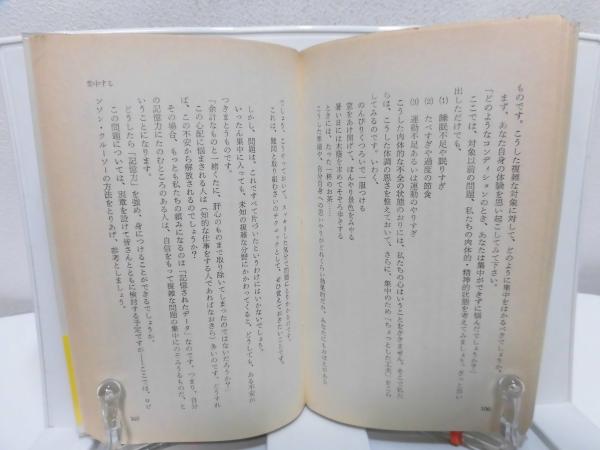 ものです。こうした複雑な対象に対して、どのように集中をはかるべきでしょうか。
まず、あなた自身の体験を思い起こしてみて下さい。
「どのようなコンディションのとき、あなたは集中ができずに悩んだでしょうか？」
ここでは、対象以前の問題、私たちの肉体的・精神的状態を考えてみましょう。ざっと思い
出しただけでも、
(1) 睡眠不足や眠りすぎ
(2) たべすぎや過度の節食
(3) 運動不足あるいは運動のやりすぎ
こうした肉体的な不全の状態のおりには、私たちの心はいうことをききません。そこで私た
ちは、こうした体調の悪さを整えておいて、さらに、集中のため「ちょっとした工夫」をこら
してみるのです。いわく、
のんびりくつろいで一服つける
窓をあけ開げて、ぼんやり景色をみやる
暑い日には木蔭を求めてそぞろ歩きする
ときには、たった一杯のお茶……
こうした準備が、自分自身への思いやりがどれくらい効果的だか、あなたにもおぼえがある
106
集中する
でしょう。こうやっておいて、スッキリした気分で問題にとりかかるのです。
これは、難問と取り組むさいのテクニックとして、ぜひ覚えておきたいことです。
しかし、問題は、これですべて片づいたというわけにはいかないでしょう。
いったん集中に入っても、未知の複雑な分野にかかわってくると、どうしても、ある不安が
つきまとうものです。
「余計なものと一緒くたに、肝心のものまで取り除いてしまったのではないだろうか？」
この心配に悩まされる人は（知的な仕事をする人であればなおさら）多いのです。どうすれ
ば、この不安から解放されるのでしょうか？
その場合、もっとも私たちの頼みになるのは「記憶されたデータ」なのです。つまり、自分
の記憶力にたのむところのある人は、自信をもって複雑な問題の集中にのぞみうるものだ、と
いうことになります。
どうしたら「記憶力」を強め、身につけることができるでしょうか。
この問題については、別章を設けて皆さんとともに検討する予定ですが――ここでは、ロビ
ンソン・クルーソーの方法をとりあげ、参考としましょう。
107